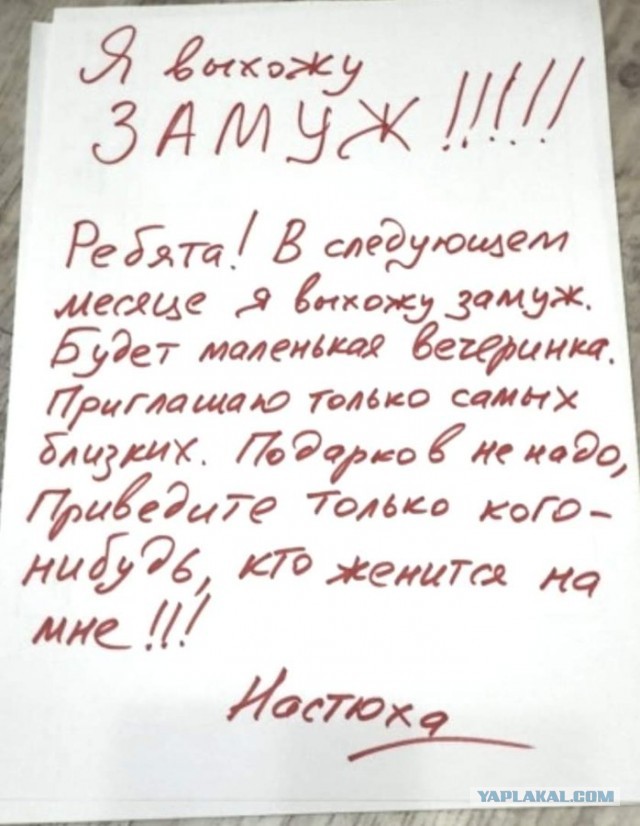 Я выхожу
ЗАМУЖ !!!!!!
Ребята! В следующем
месяце я выхожу замуж.
Будет маленькая вечеринка.
Приглашаю только самых
близких. Подарков не надо,
Приведите только кого-
нибудь, кто женится на
мне!!!
Настюха
YAPLAKAL.COM